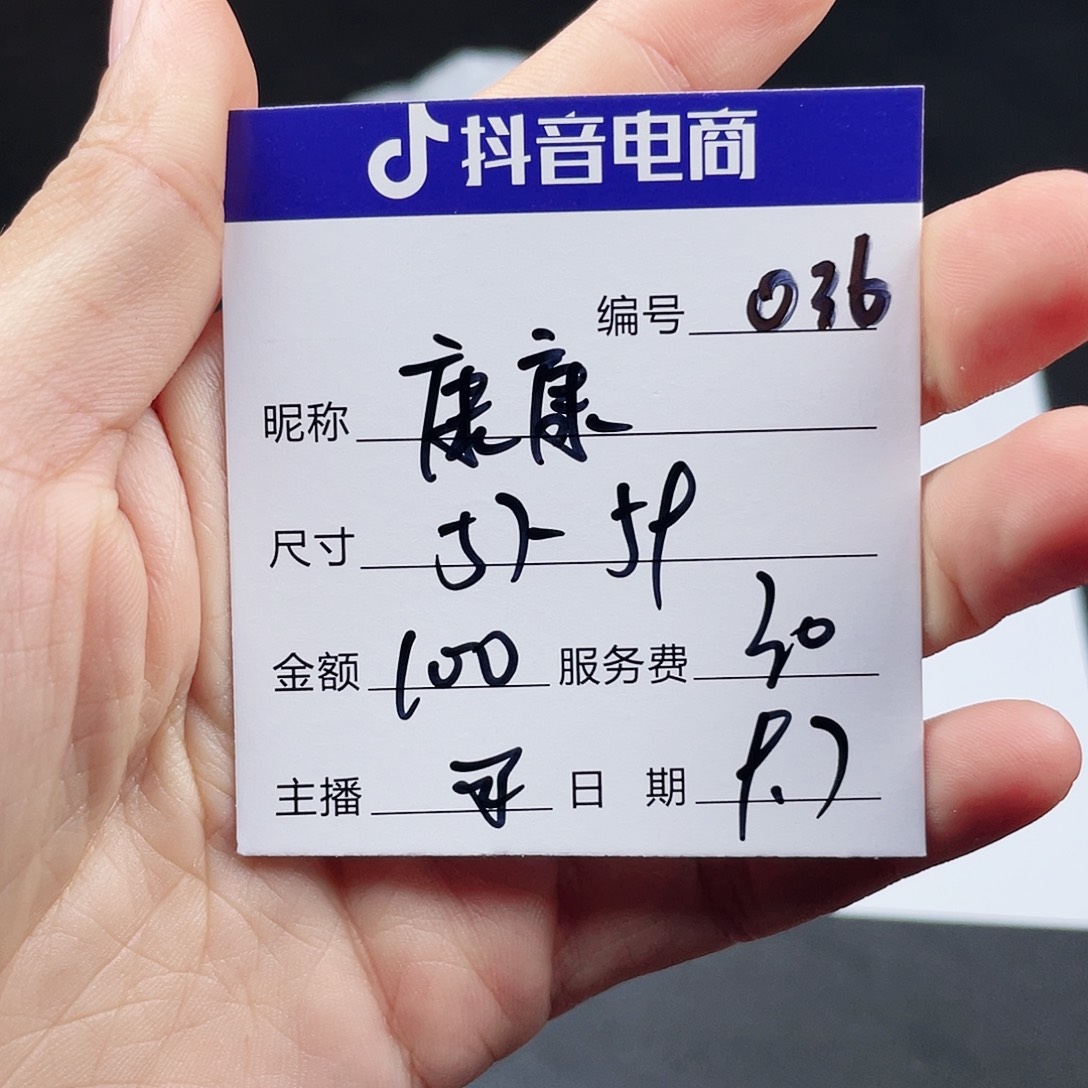 抖音电商
编号 036
昵称 康康
尺寸 57-59
金额 100 服务费 30
主播 日期 9.7